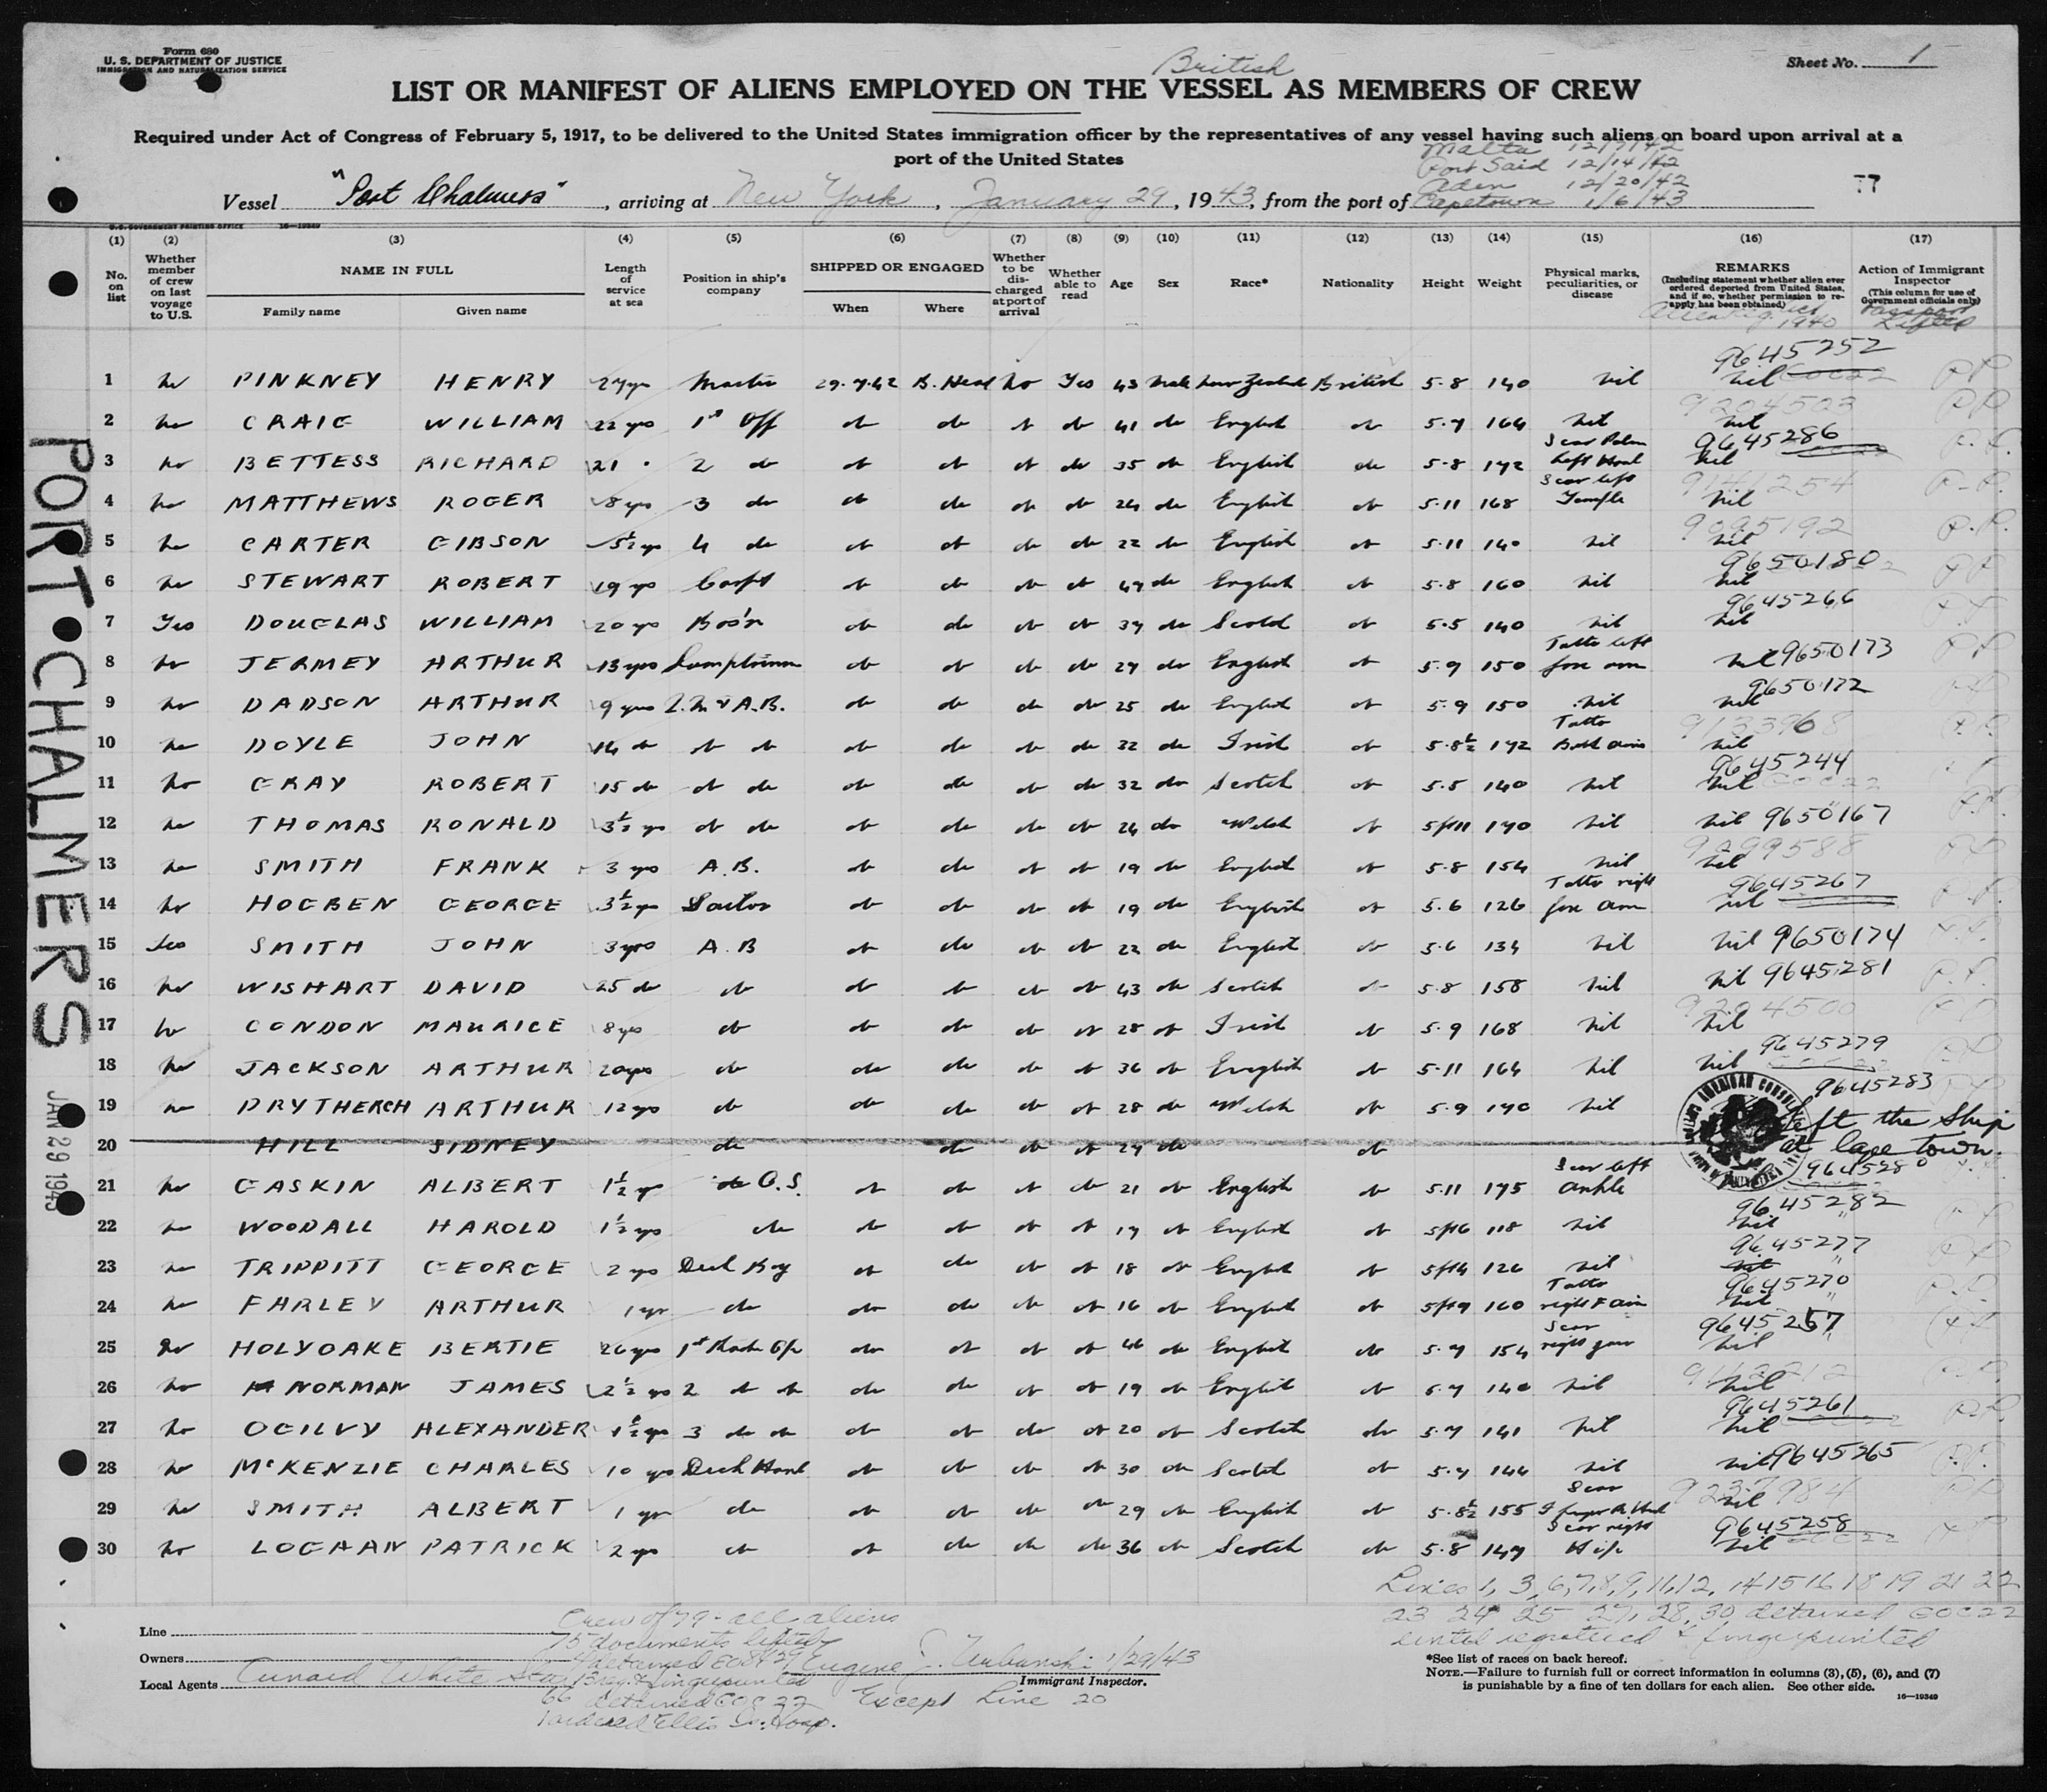 Form 680
U. S. DEPARTMENT OF JUSTICE
IMMIGRATION AND NATURALIZATION SERVICE
Sheet No. 1
British
LIST OR MANIFEST OF ALIENS EMPLOYED ON THE VESSEL AS MEMBERS OF CREW
Required under Act of Congress of February 5, 1917, to be delivered to the United States immigration officer by the representatives of any vessel having such aliens on board upon arrival at a
port of the United States
Malta 12/7/42
Port Said 12/14/42
Aden 12/20/42
Vessel "Port Chalmers", arriving at New York, January 29, 1943, from the port of Capetown 1/6/43
77
U.S. GOVERNMENT PRINTING OFFICE 16—19349
(1) (2) (3) (4) (5) (6) (7) (8) (9) (10) (11) (12) (13) (14) (15) (16) (17)
No. on list
Whether member of crew on last voyage to U.S.
NAME IN FULL
Family name Given name
Length of service at sea
Position in ship's company
SHIPPED OR ENGAGED
When Where
Whether to be discharged at port of arrival
Whether able to read
Age
Sex
Race*
Nationality
Height
Weight
Physical marks, peculiarities, or disease
REMARKS
(Including statement whether alien ever ordered deported from United States, and if so, whether permission to reapply has been obtained)
Action of Immigrant Inspector
(This column for use of Government officials only)
1940
9645252
1 no PINKNEY HENRY 27 yrs Master 29.7.42 B. Head no Yes 43 male New Zealand British 5.8 140 nil nil
9204503
2 no CRAIG WILLIAM 22 yrs 1st Off do do do do 41 do English do 5.7 164 nil nil
Scar Palm 9645286
3 no BETTESS RICHARD 21 " 2 do do do do do 35 do English do 5.8 172 Left Hand nil
Scar left
4 no MATTHEWS ROGER 8 yrs 3 do do do do do 24 do English do 5.11 168 Temple nil
9095192
5 no CARTER GIBSON 5½ yrs 4 do do do do do 22 do English do 5.11 140 nil nil
9650180
6 no STEWART ROBERT 19 yrs Carpt do do do do 47 do English do 5.8 160 nil nil
9645266
7 Yes DOUGLAS WILLIAM 20 yrs Bos'n do do do do 37 do Scotch do 5.5 140 nil nil
Tatto left
8 no JERMEY ARTHUR 13 yrs Lamptrimmer do do do do 27 do English do 5.9 150 fore arm nil 9650173
9650172
9 no DADSON ARTHUR 9 yrs A.B. do do do do 25 do English do 5.9 150 nil nil
Tatto 9133968
10 no DOYLE JOHN 14 do do do do do do do 32 do Irish do 5.8½ 172 Both arms nil
9645244
11 no GRAY ROBERT 15 do do do do do do do 32 do Scotch do 5.5 140 nil nil
12 no THOMAS RONALD 3½ yrs do do do do do do 24 do Welsh do 5ft11 170 nil nil 9650167
9299588
13 no SMITH FRANK 3 yrs A.B. do do do do 19 do English do 5.8 154 nil nil
Tatto right 9645267
14 no HOGBEN GEORGE 3½ yrs Sailor do do do do 19 do English do 5.6 126 fore arm nil
15 Yes SMITH JOHN 3 yrs A.B do do do do 22 do English do 5.6 134 nil nil 9650174
16 no WISHART DAVID 25 do do do do do do 43 do Scotch do 5.8 158 nil nil 9645281
9204500
17 no CONDON MAURICE 8 yrs do do do do do 28 do Irish do 5.9 168 nil nil
9645279
18 no JACKSON ARTHUR 20 yrs do do do do do 36 do English do 5.11 164 nil nil
9645283
19 no PRYTHERCH ARTHUR 12 yrs do do do do do 28 do Welsh do 5.9 170 nil
20 HILL SIDNEY do do do do 24 do do Left the Ship at Cape town.
Scar left 9645280
21 no GASKIN ALBERT 1½ yr do O.S. do do do do 21 do English do 5.11 175 ankle
9645282
22 no WOODALL HAROLD 1½ yrs do do do do do 17 do English do 5ft6 118 nil nil
9645277
23 no TRIPPITT GEORGE 2 yrs Deck Boy do do do do 18 do English do 5ft4 126 nil nil
Tatto 9645270
24 no FARLEY ARTHUR 1 yr do do do do do 16 do English do 5ft9 160 right F arm nil
Scar 9645257
25 no HOLYOAKE BERTIE 26 yrs 1st Radio Op do do do do 46 do English do 5.7 154 right nil
26 no NORMAN JAMES 2½ yrs 2 do do do do do do 19 do English do 5.7 140 nil nil
9645261
27 no OGILVY ALEXANDER 1½ yrs 3 do do do do do do 20 do Scotch do 5.7 141 nil nil
28 no McKENZIE CHARLES 10 yrs Deck Hand do do do do 30 do Scotch do 5.7 144 nil nil 9645265
Scar
29 no SMITH ALBERT 1 yr do do do do do 29 do English do 5.8½ 155 nil
Scar right 9645258
30 no LOGHAN PATRICK 2 yrs do do do do do 36 do Scotch do 5.8 147 Hip nil
PORT CHALMERS
JAN 29 1943
Lines 1, 3, 6, 7, 8, 9, 11, 12, 14 15 16 18 19 21 22
23 24 25 27, 28, 30 detained EOC22
until registered & fingerprinted
Crew of 79 - all aliens
75 documents lifted
Line
Owners
Eugene J. Urbanski 1/29/43
Local Agents Cunard White Star
Immigrant Inspector.
66 detained EOC22 Except Line 20
*See list of races on back hereof.
NOTE.—Failure to furnish full or correct information in columns (3), (5), (6), and (7)
is punishable by a fine of ten dollars for each alien. See other side.
16—19349